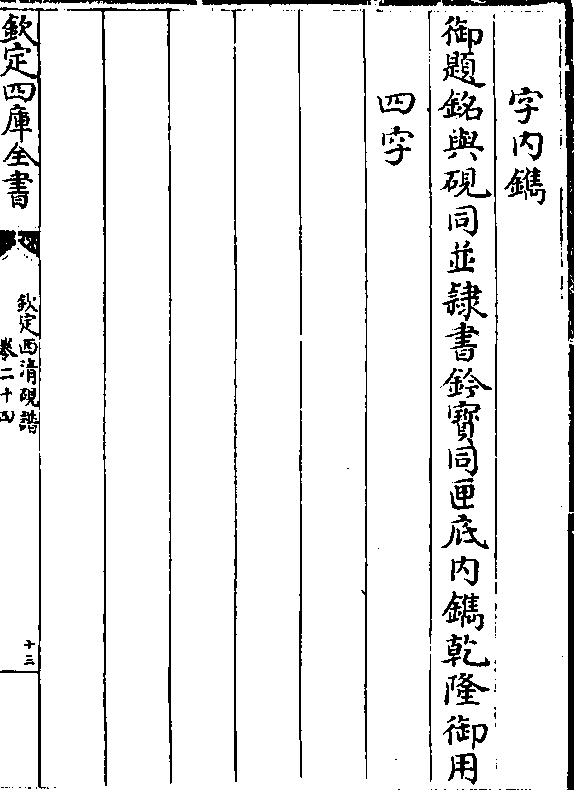 字内鐫
御題銘與硯同並隷書鈐寶同匣底内鐫乾隆御用
四字
欽定四庫全書
欽定西清硯譜
卷二十四
十三